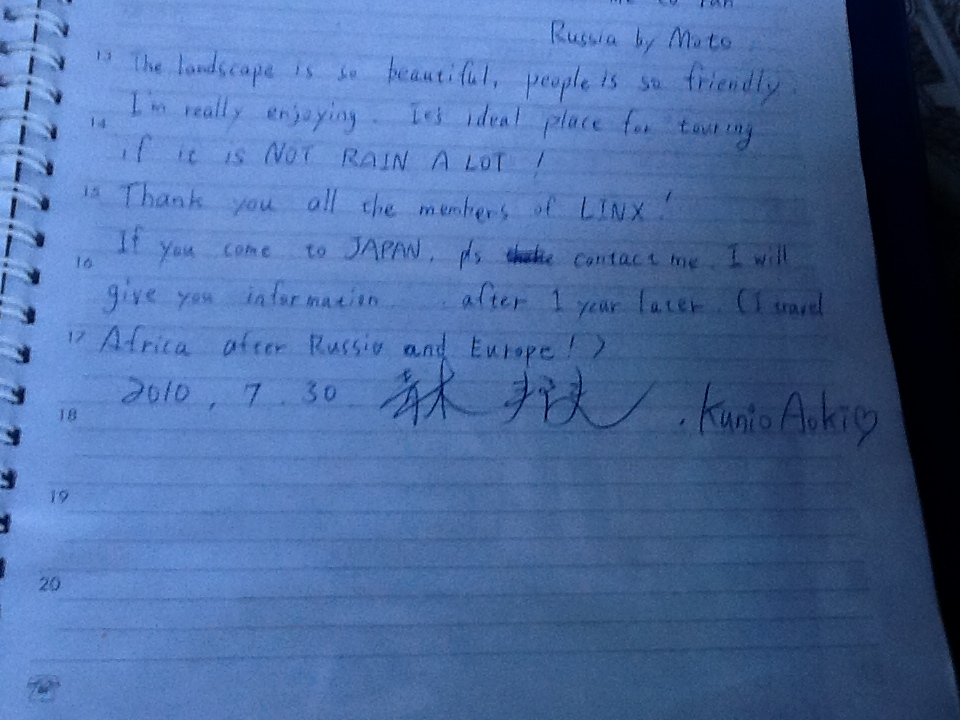 me to run
Russia by Moto
13 The landscape is so beautiful, people is so friendly.
I'm really enjoying. It's ideal place for touring
14
if it is NOT RAIN A LOT !
15 Thank you all the members of LINX!
If you come to JAPAN, pls contact me. I will
16
give you information. . after 1 year later. (I travel
17 Africa after Russia and Europe!)
2010, 7. 30 青木 邦夫 . Kunio Aoki♡
18
19
20